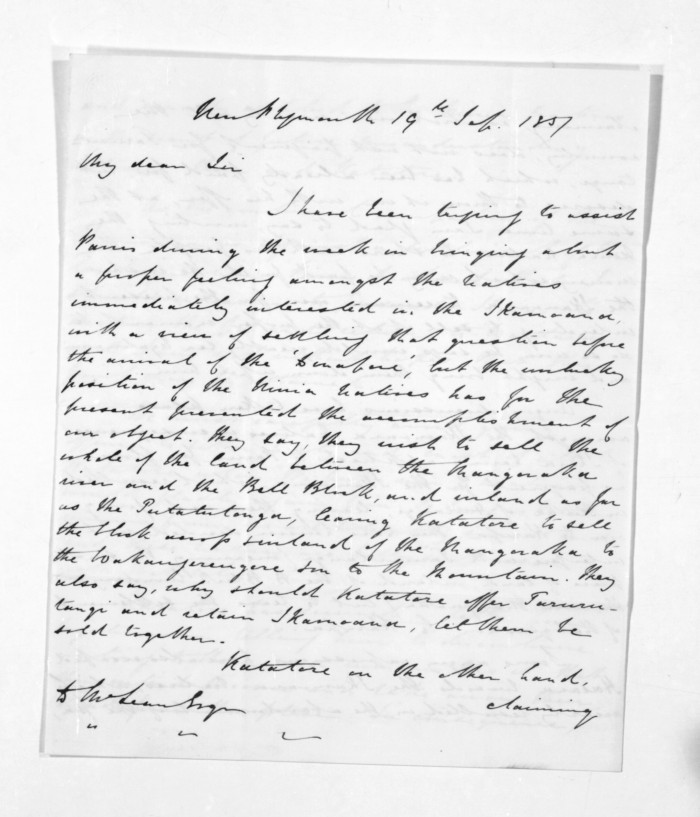 New Plymouth 19th Sep. 1857
My dear Sir
I have been trying to assist
Parris during the week in bringing about
a proper feeling amongst the Natives
immediately interested in the Ikamoana,
with a view of settling that question before
the arrival of the but the unlucky
position of the Ninia Natives has for the
present prevented the accomplishment of
our object. They say, they wish to sell the
whole of the land between the Mangoraka
river and the Bell Block, and inland as far
as the Putatutonga, leaving Katatore to sell
the block across inland of the Mangoraka to
the on to the Mountain. They
also say, why should Katatore offer Tarurutangi
and retain Ikamoana, let them be
sold together.
Katatore on the other hand,
D McLean Esqre claiming
" " "